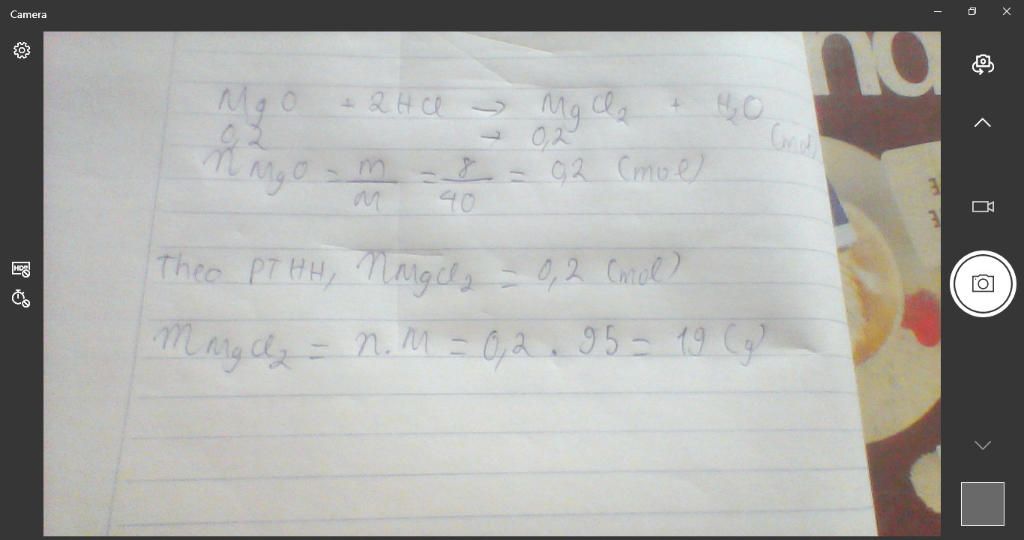 Camera
nd
MgO + 2HCl → MgCl₂ + H₂O
0,2 → 0,2 (mol)
nMgO = m/M = 8/40 = 0,2 (mol)
Theo PTHH, nMgCl₂ = 0,2 (mol)
mMgCl₂ = n.M = 0,2 . 95 = 19 (g)